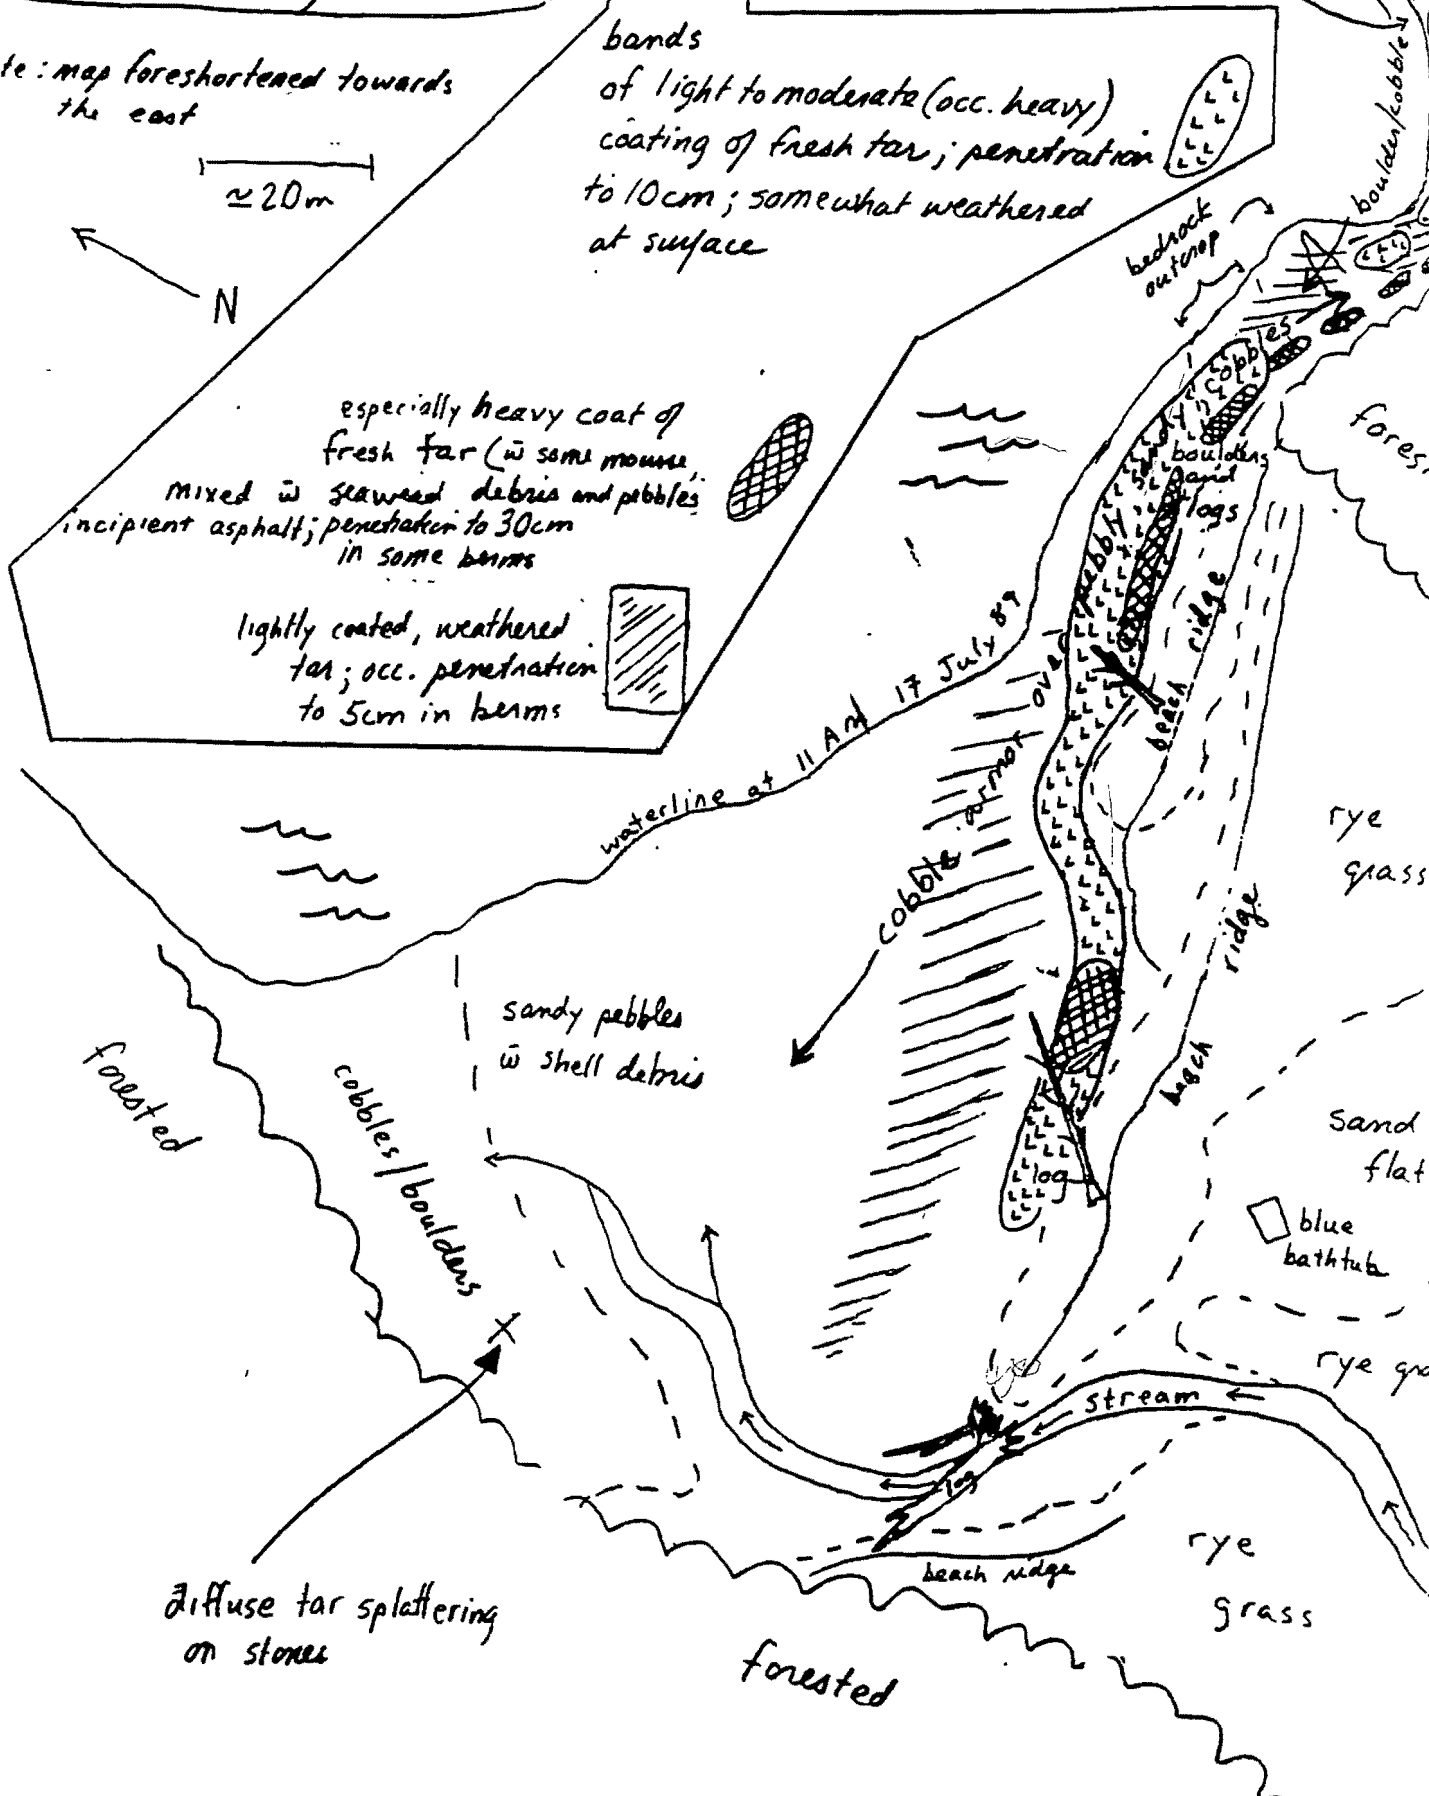 te: map foreshortened towards
the east
≃20m
N
bands
of light to moderate (occ. heavy)
coating of fresh tar; penetration
to 10cm; somewhat weathered
at surface
especially heavy coat of
fresh tar (w̄ some mousse,
mixed w̄ seaweed debris and pebbles
incipient asphalt; penetration to 30cm
in some berms
lightly coated, weathered
tar; occ. penetration
to 5cm in berms
boulder/cobble
bedrock
outcrop
cobbles
boulders
and
logs
fores
pebbly
ridge
beach
waterline at 11 AM 17 July 89
cobble armor over
rye
grass
ridge
beach
sandy pebbles
w̄ shell debris
forested
cobbles/boulders
sand
flat
log
blue
bathtub
rye gra
stream
log
beach ridge
rye
grass
diffuse tar splattering
on stones
X
forested